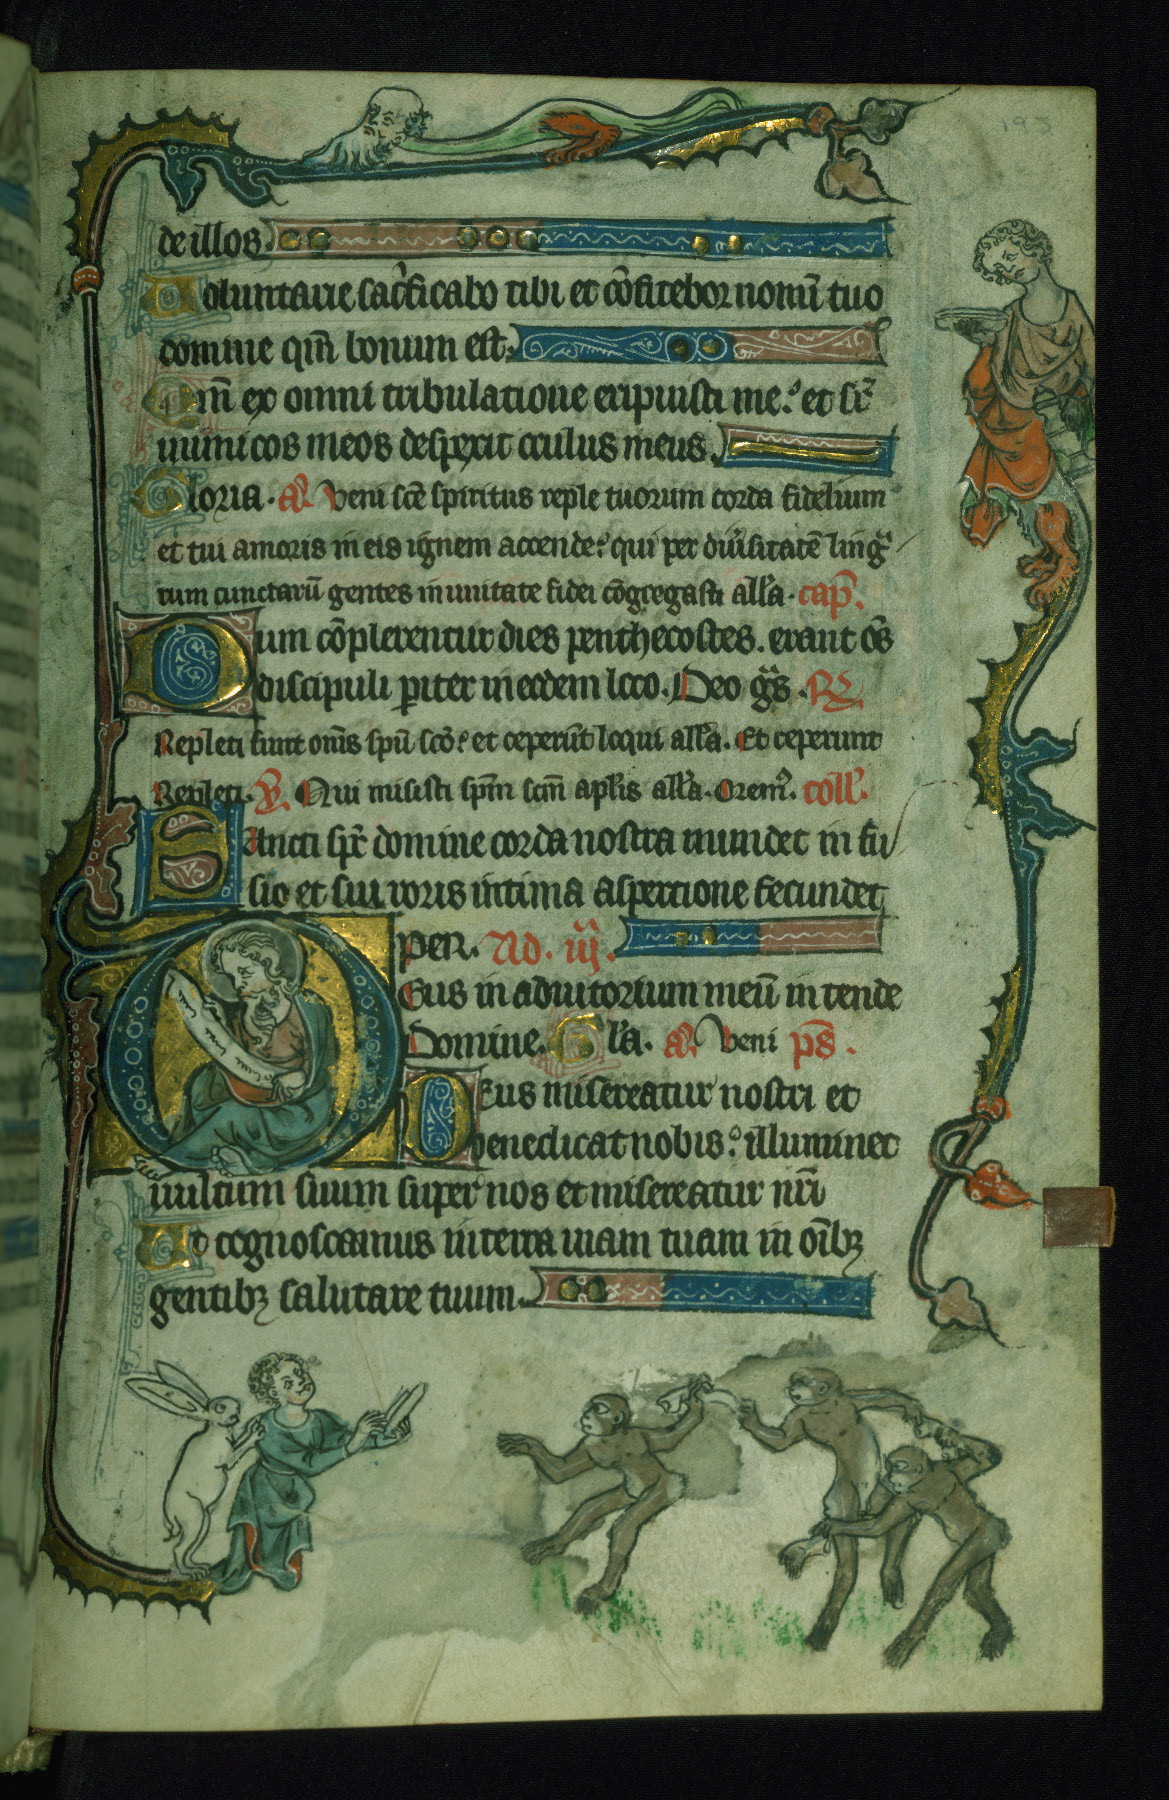 de illos.
Voluntarie sac̉ficabo tibi et cōfitebor nomī tuo
domine qm̄ bonum est.
Qm̄ ex omni tribulatione eripuisti me. et sr̄
inimicos meos despexit oculus meus.
Gloria. añ. Veni sc̄e spiritus reple tuorum corda fidelium
et tui amoris in eis ignem accende. qui per diūsitatē lingᷓ
rum cunctarū gentes in unitate fidei cōgregasti all̄a. cap̄.
Dum cōplerentur dies penthecostes. erant oēs
discipuli ꝑiter in eodem loco. Deo gᷓs. R̄
Repleti sunt om̄s spū sc̄o. et ceperūt loqui all̄a. Et ceperunt
Repleti. V̄. Qui misisti spm̄ scm̄ apl̄is all̄a. Orem᷒. coll̄.
Sancti spc̄ domine corda nostra mundet in fu
sio et sui roris intima aspertione fecundet
per. Ad. iij.
Deus in adiutorium meū intende
Domine. Gl̄a. añ. Veni ps̄.
Deus misereatur nostri et
benedicat nobis. illuminet
uultum suum super nos et misereatur nr̄i
Ut cognoscamus in terra uiam tuam in oībꝫ
gentibꝫ salutare tuum.